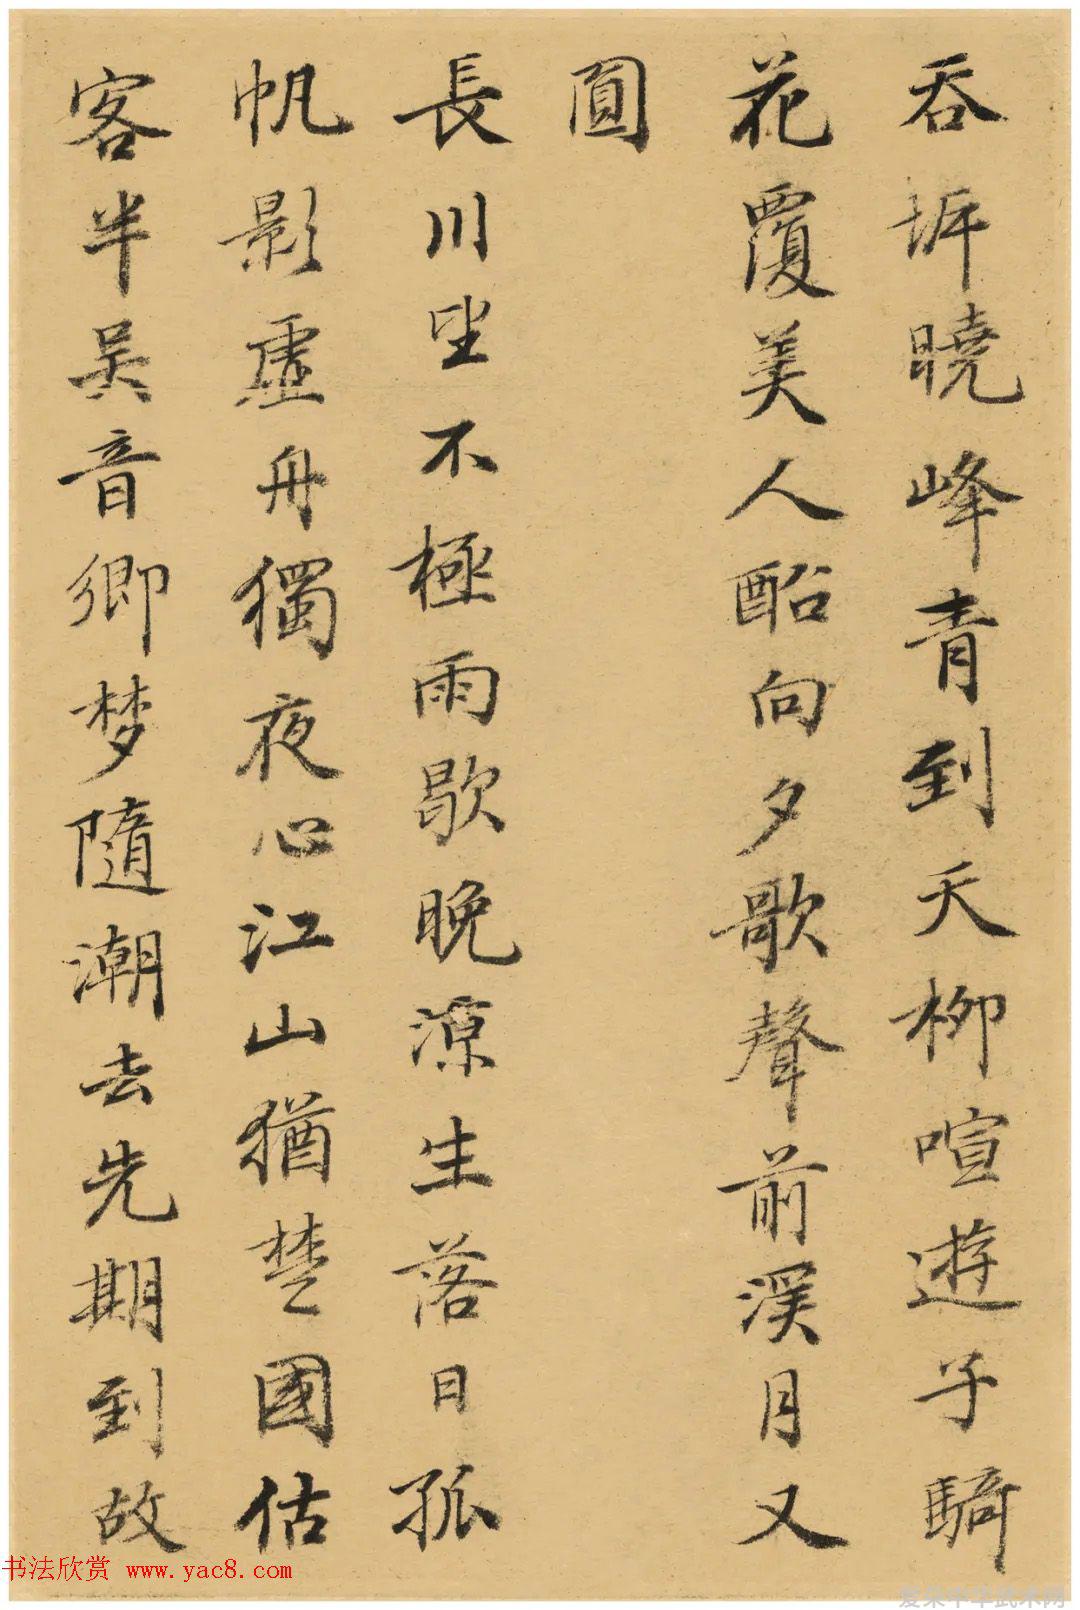 吞坼曉峰青到天柳喧遊子騎
花覆美人酩向夕歌聲前溪月又
圓
長川坐不極雨歇晚涼生落日孤
帆影虛舟獨夜心江山猶楚國估
客半吳音鄉梦隨潮去先期到故
书法欣赏 www.yac8.com
爱栗中华武术网